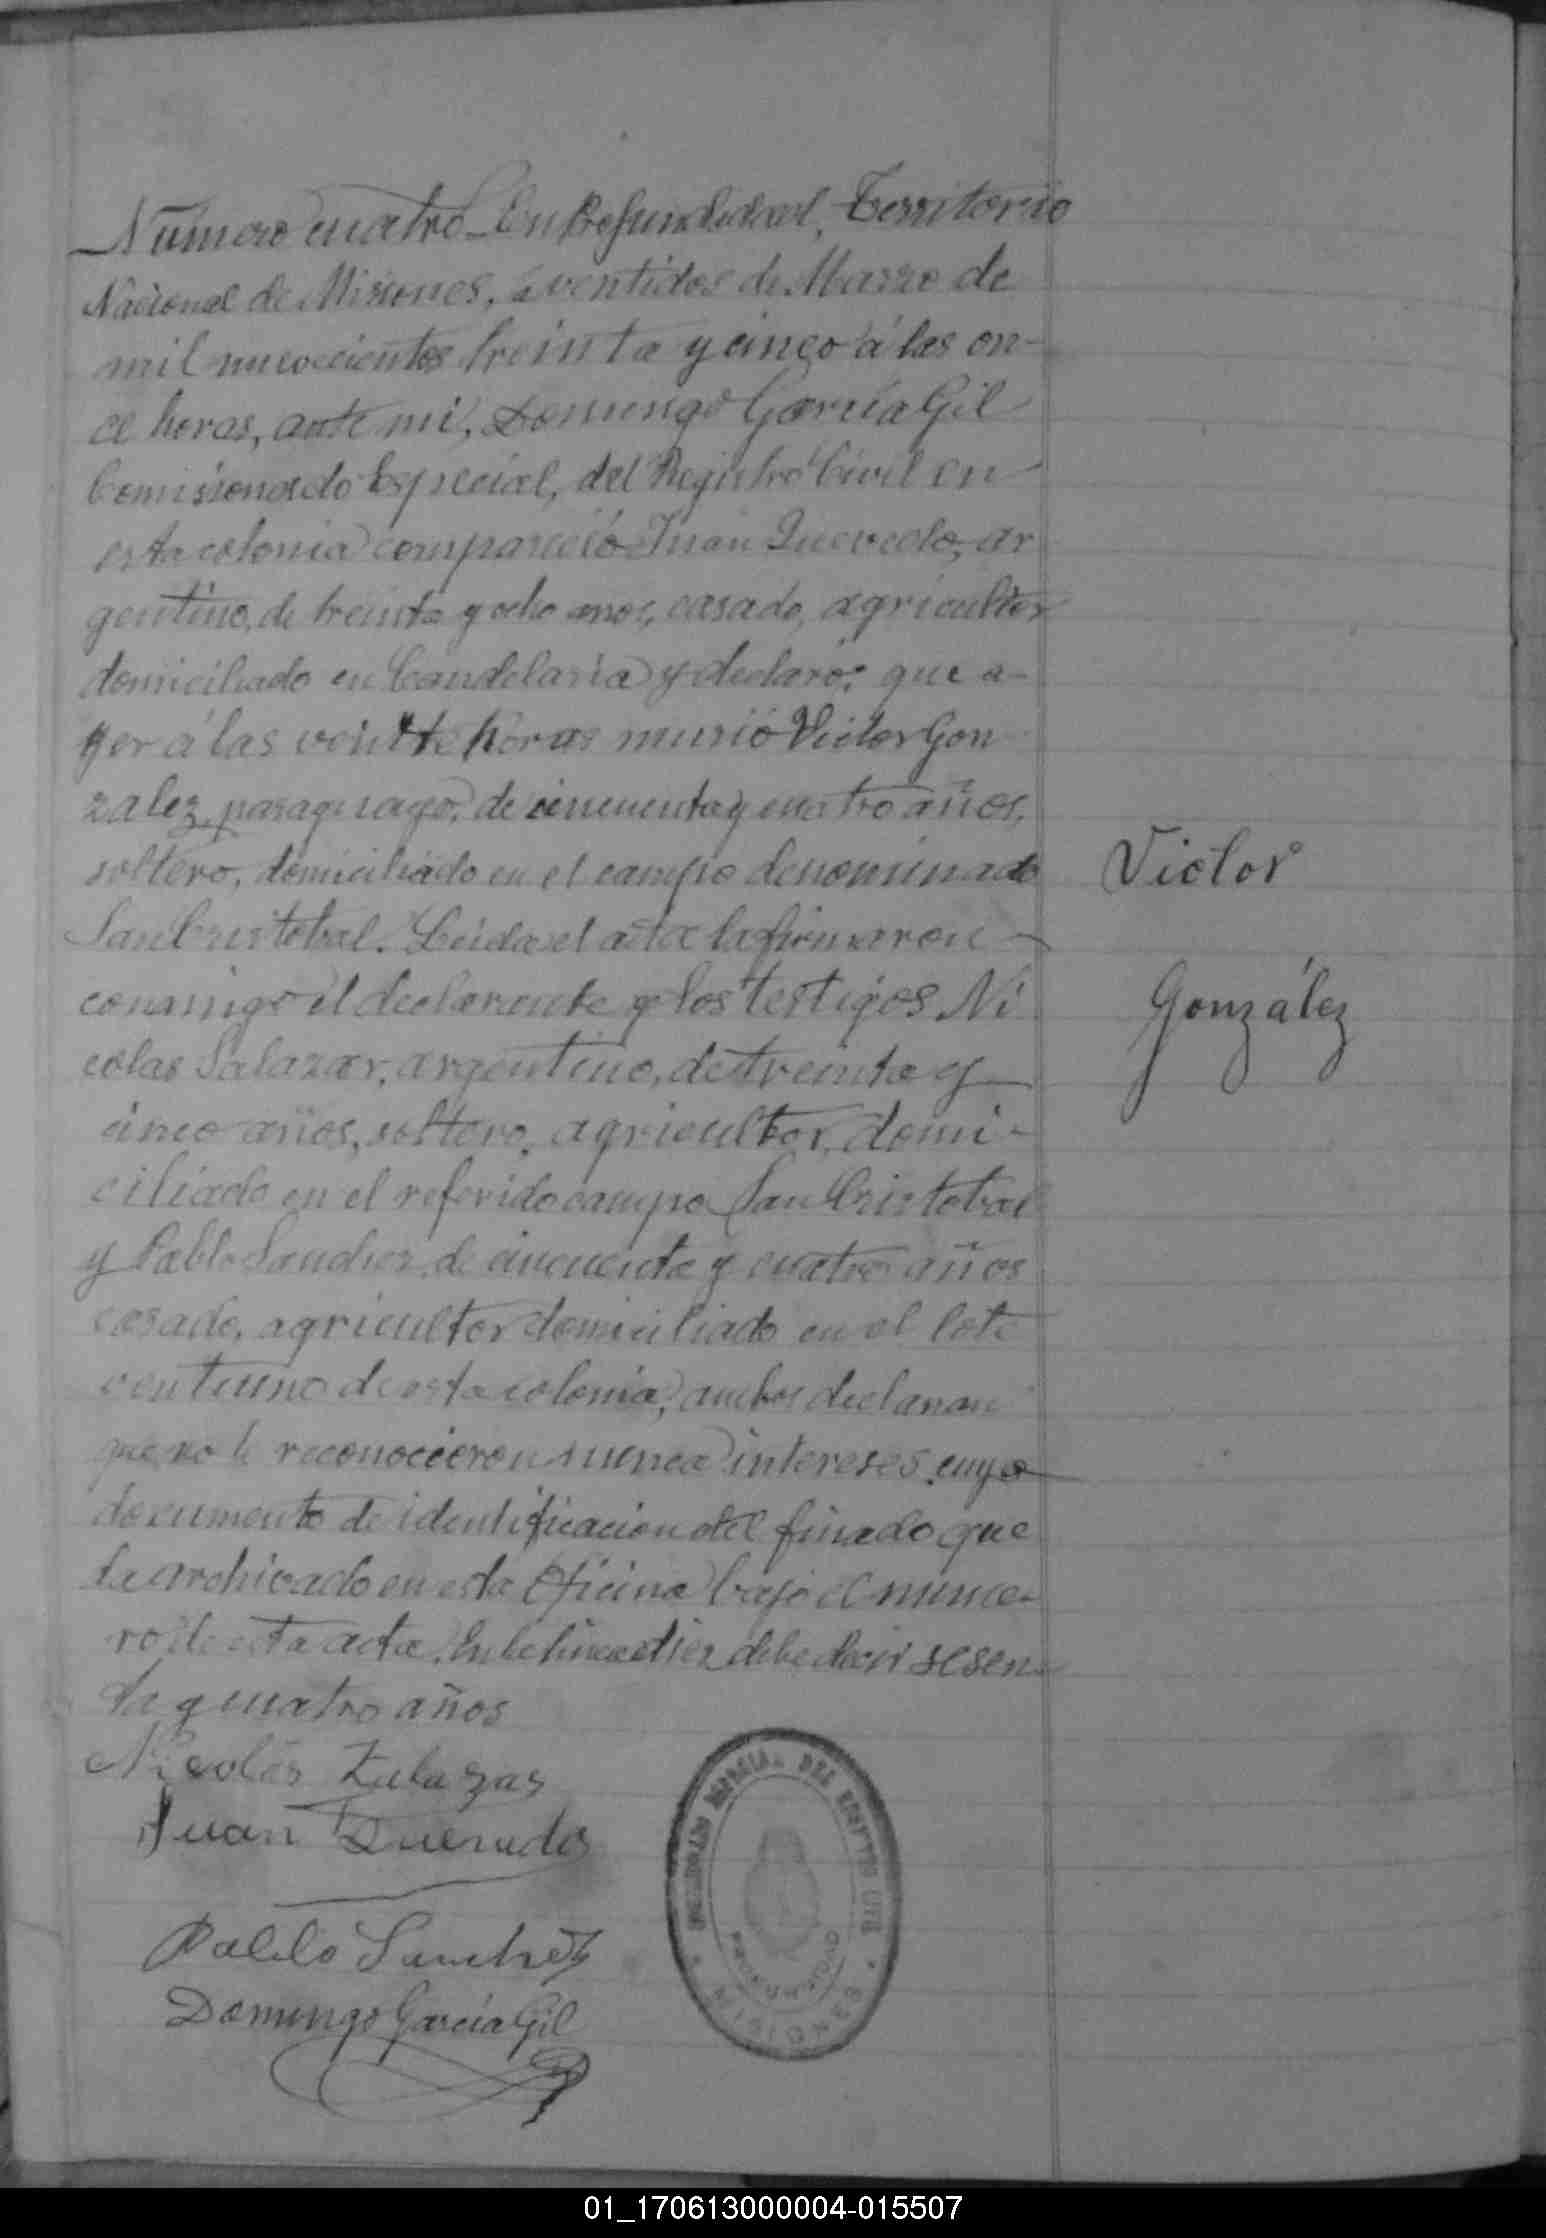 Número cuatro_En Profundidad, Territorio
Nacional de Misiones, á ventidos de Marzo de
mil nuevecientos treinta y cinco á las on-
ce horas, ante mi, Domingo García Gil
Comisionado Especial, del Registro Civil en
esta colonia compareció Juan Quevedo, ar
gentino, de treinta y ocho años, casado, agricultor
domiciliado en Candelaria y declaró: que a-
yer á las veinte horas murió Victor Gon
zalez, paraguayo, de cincuenta y cuatro años,
soltero, domiciliado en el campo denominado
San Cristobal. Leida el acta la firmaron
conmigo el declarante y los testigos Ni
colas Salazar, argentino, de treinta y
cinco años, soltero, agricultor, domi-
ciliado en el referido campo San Cristobal
y Pablo Sanchez, de cincuenta y cuatro años
casado, agricultor domiciliado en el lote
ventiuno de esta colonia, ambos declaran
que no le reconocieron nunca intereses, cuyo
documento de identificacion del finado que
da archivado en esta Oficina bajo el nume-
ro de esta acta. En la linea diez debe decir sesen-
ta y cuatro años
Victor
González
Nicolás Zalazar
Juan Quevedo
Pablo Sanchez
Domingo García Gil
REGISTRO CIVIL
PROFUNDIDAD
MISIONES
01_170613000004-015507